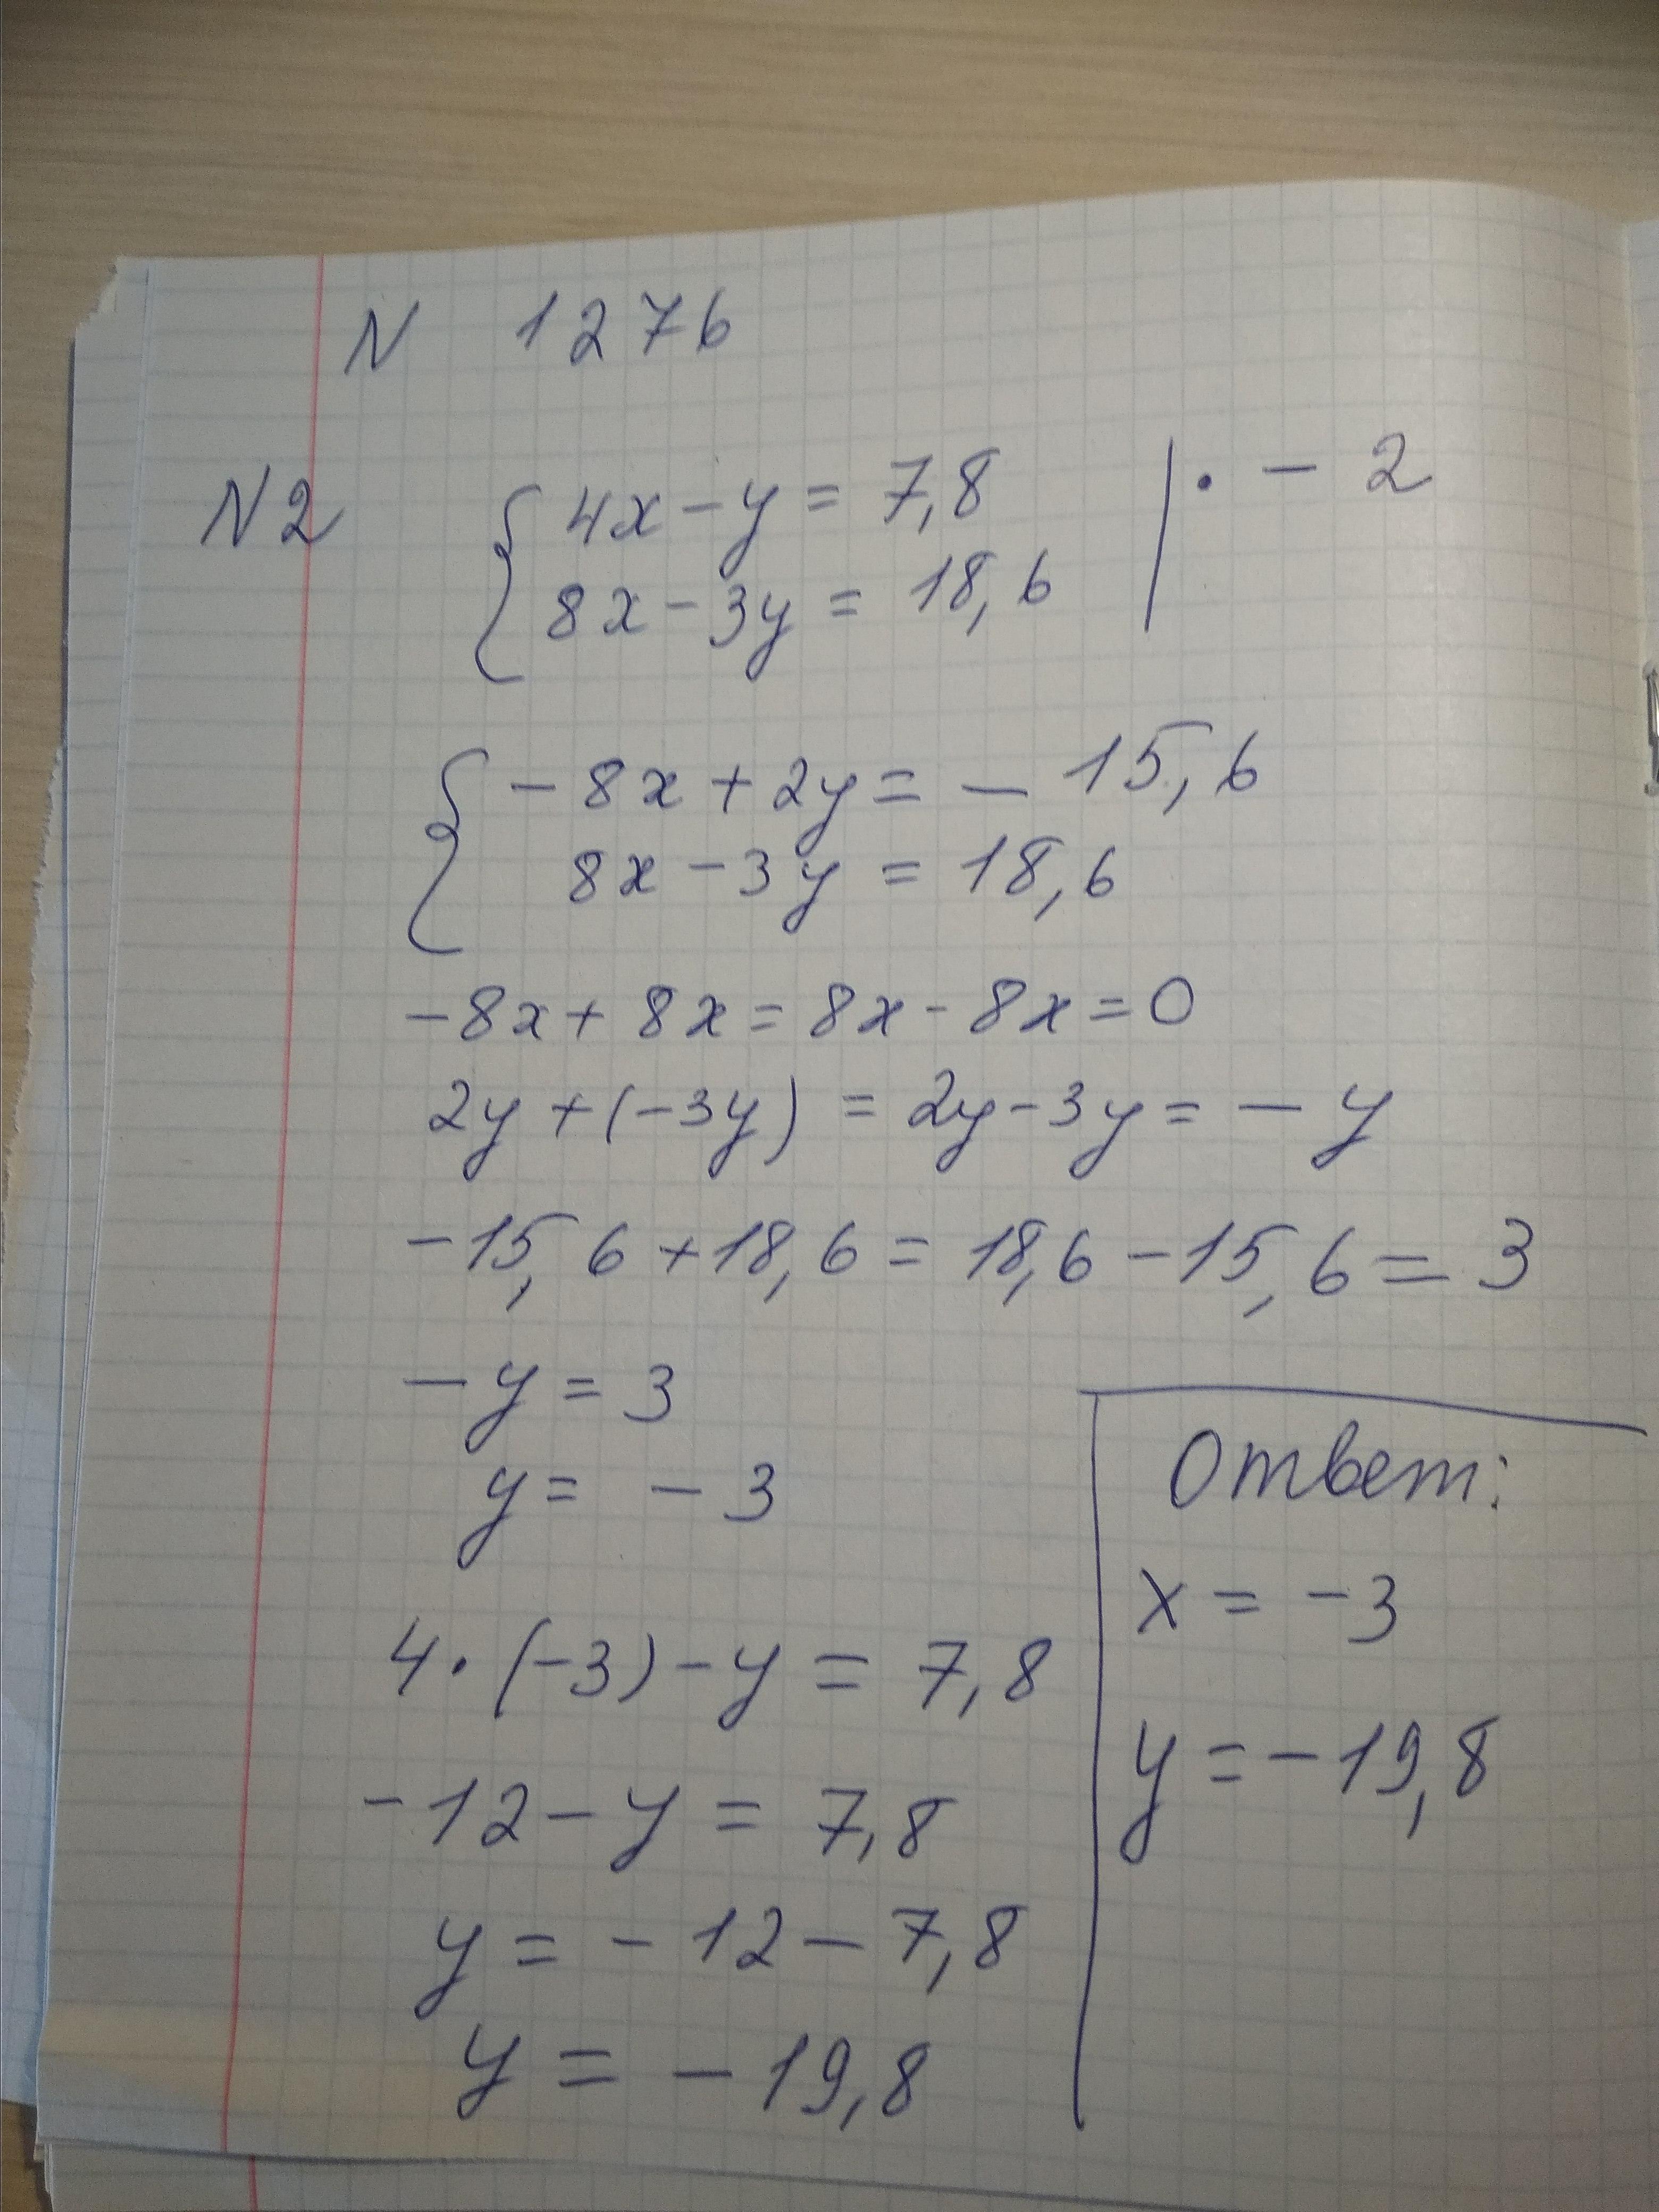 N 1276
N2 { 4x - y = 7,8 | · - 2
8x - 3y = 18,6
{ - 8x + 2y = - 15,6
8x - 3y = 18,6
- 8x + 8x = 8x - 8x = 0
2y + (-3y) = 2y - 3y = - y
- 15,6 + 18,6 = 18,6 - 15,6 = 3
- y = 3
y = - 3
4 · (-3) - y = 7,8
- 12 - y = 7,8
y = - 12 - 7,8
y = - 19,8
Ответ:
x = -3
y = - 19,8